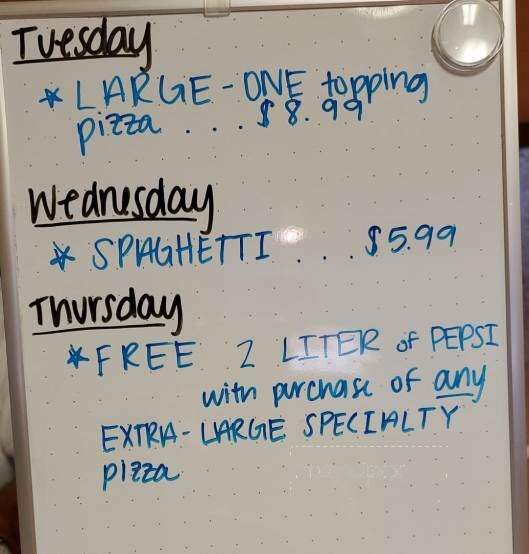 Tuesday
* LARGE - ONE topping
pizza . . . $ 8.99
Wednesday
* SPAGHETTI . . . . $5.99
Thursday
* FREE 2 LITER of PEPSI
with purchase of any
EXTRA - LARGE SPECIALTY
pizza